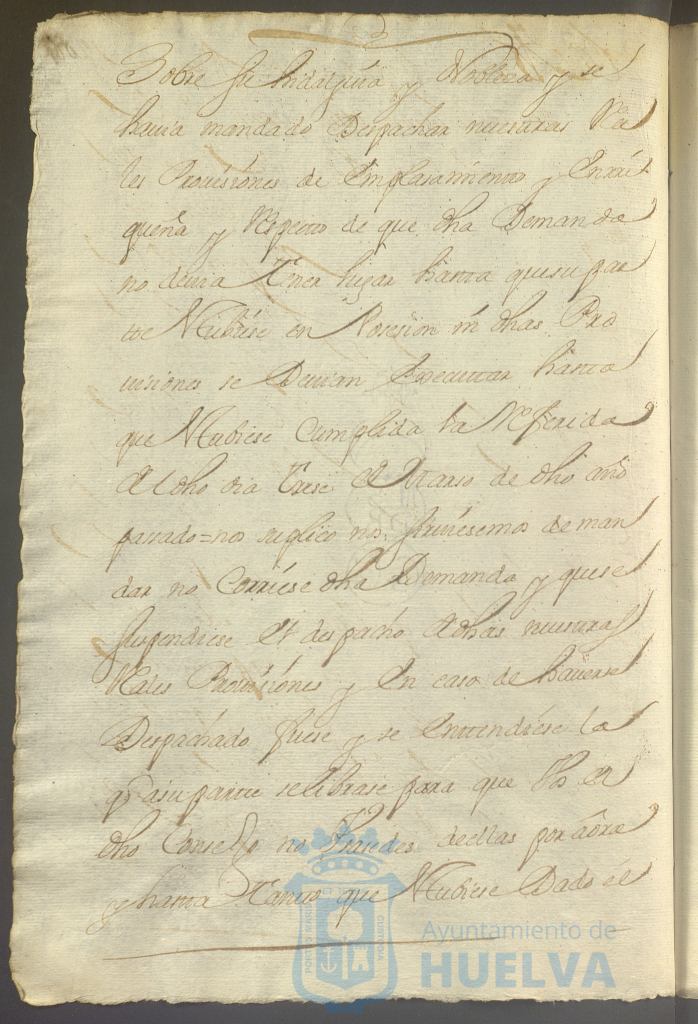 Sobre su hidalguia y Nobleza y se
hauia mandado Despachar nuestras Rea
les Prouisiones de Emplasamiento y Enrri
queña y Respecto de que dha Demanda
no deuia tener lugar hasta que su par
te stubiese en Posesion ni dhas Pro
uisiones se Deuian Executar hasta
que stubiese Cumplida la Referida
dho dia trese de Marso de dho año
passado = nos suplico nos siruiesemos de man
dar no Corriese dha Demanda y que se
suspendiese el despacho de dhas nuestras
Reales Prouisiones y en caso de hauerse
Despachado fuese y se entendiese la
q̃ a su parte se librase para que Vos el
dho Consejo no Vsasedes de ellas por aóra
y hasta tanto que stubiese Dado el
PORTUS MARIS
CUSTODIA
Ayuntamiento de
HUELVA